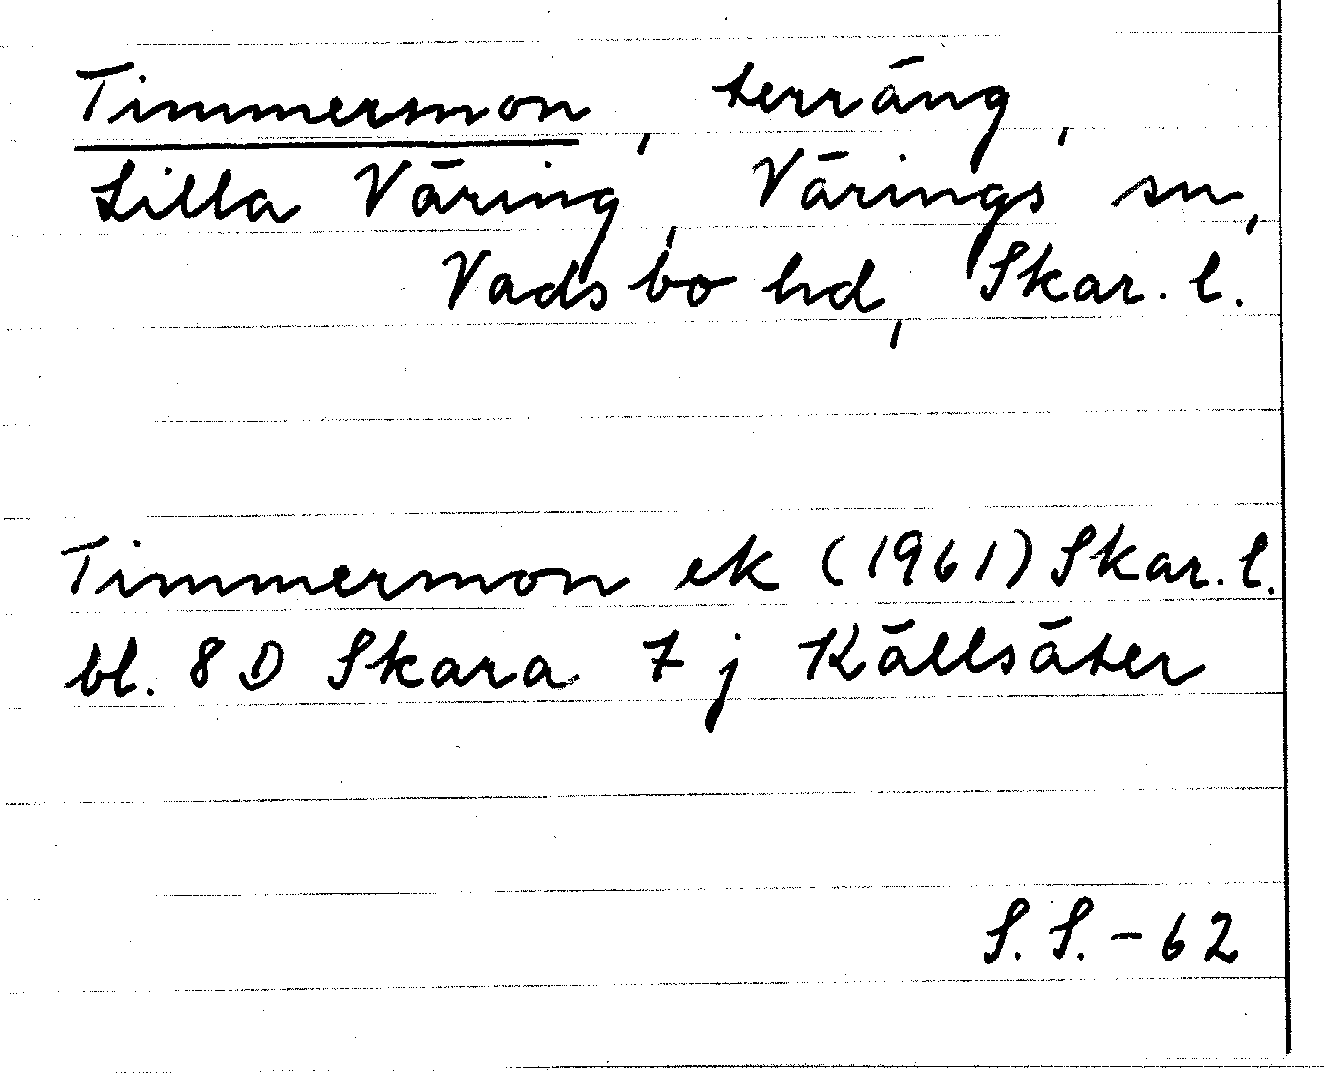 Timmersmon, terräng,
Lilla Väring, Värings sn,
Vadsbo hd, Skar. l.
Timmermon ek (1961) Skar. l.
bl. 8 D Skara 7 j Källsäter
S. S. - 62